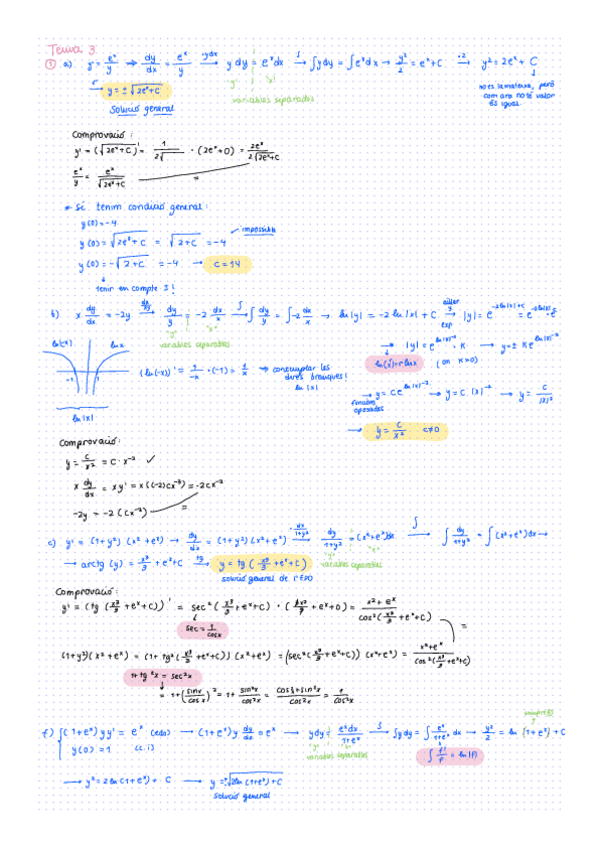 Tema 3
① a) y' = e^x/y ⇒ dy/dx = e^x/y —·ydx→ y dy = e^x dx —∫→ ∫y dy = ∫e^x dx → y²/2 = e^x + C —·2→ y² = 2e^x + C
"y" "x"
variables separades
no es la mateixa, però com ara no té valor és igual
—√→ y = ± √(2e^x + C)
Solució general
Comprovació:
y' = (√(2e^x + C))' = 1/(2√ ) · (2e^x + 0) = 2e^x/(2√(2e^x + C))
e^x/y = e^x/√(2e^x + C)
=
* Si tenim condició general:
y(0) = -4
y(0) = √(2e^x + C) = √(2 + C) = -4 impossible
y(0) = -√(2 + C) = -4 → C = 14
tenir en compte I!
b) x dy/dx = -2y → dy/y = -2 dx/x —∫→ ∫dy/y = ∫-2 dx/x → ln|y| = -2 ln|x| + C —exp→ |y| = e^(-2ln|x| + C) = e^(-2ln|x|) · e^C
"y" "x"
variables separades
→ |y| = e^(ln|x|^-2) · K → y = ± K e^(ln|x|^-2)
(on K>0)
ln(-x) ln x
-1 1
(ln(-x))' = 1/-x · (-1) = 1/x → contemplar les dues branques! ln|x|
→ y = C e^(ln|x|^-2) → y = C |x|^-2 → y = C/|x|²
ln|x|
→ y = C/x² C≠0
Comprovació:
y = C/x² = C · x^-2 ✓
x dy/dx = xy' = x((-2)Cx^-3) = -2Cx^-2
-2y = -2(Cx^-2)
=
c) y' = (1+y²)(x²+e^x) → dy/dx = (1+y²)(x²+e^x) —·dx/(1+y²)→ dy/(1+y²) = (x²+e^x)dx —∫→ ∫dy/(1+y²) = ∫(x²+e^x)dx →
"y" "x"
variables separades
→ arctg(y) = x³/3 + e^x + C —tg→ y = tg(x³/3 + e^x + C)
solució general de l'EDO
Comprovació:
y' = (tg(x³/3 + e^x + C))' = sec²(x³/3 + e^x + C) · (3x²/3 + e^x + 0) = (x² + e^x)/cos²(x³/3 + e^x + C)
sec = 1/cos x
=
(1+y²)(x²+e^x) = (1 + tg²(x³/3 + e^x + C))(x²+e^x) = (sec²(x³/3 + e^x + C))(x²+e^x) = (x²+e^x)/cos²(x³/3 + e^x + C)
1 + tg²x = sec²x
= 1 + (sin x/cos x)² = 1 + sin²x/cos²x = (cos²x + sin²x)/cos²x = 1/cos²x
f) { (1+e^x) y y' = e^x (edo) → (1+e^x) y dy/dx = e^x → y dy = e^x dx/(1+e^x) —∫→ ∫y dy = ∫e^x/(1+e^x) dx → y²/2 = ln(1+e^x) + C
y(0) = 1 (c.i)
"y" "x"
variables separades
∫f'/f = ln|f|
→ y² = 2 ln(1+e^x) + C → y = ±√(2ln(1+e^x) + C)
solució general